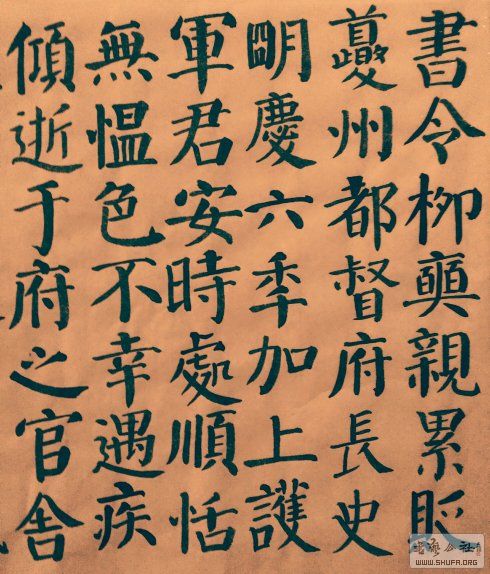 書令柳奭親累貶
夔州都督府長史
明慶六秊加上護
軍君安時處順恬
無慍色不幸遇疾
傾逝于府之官舍
書藝公社
WWW.SHUFA.ORG